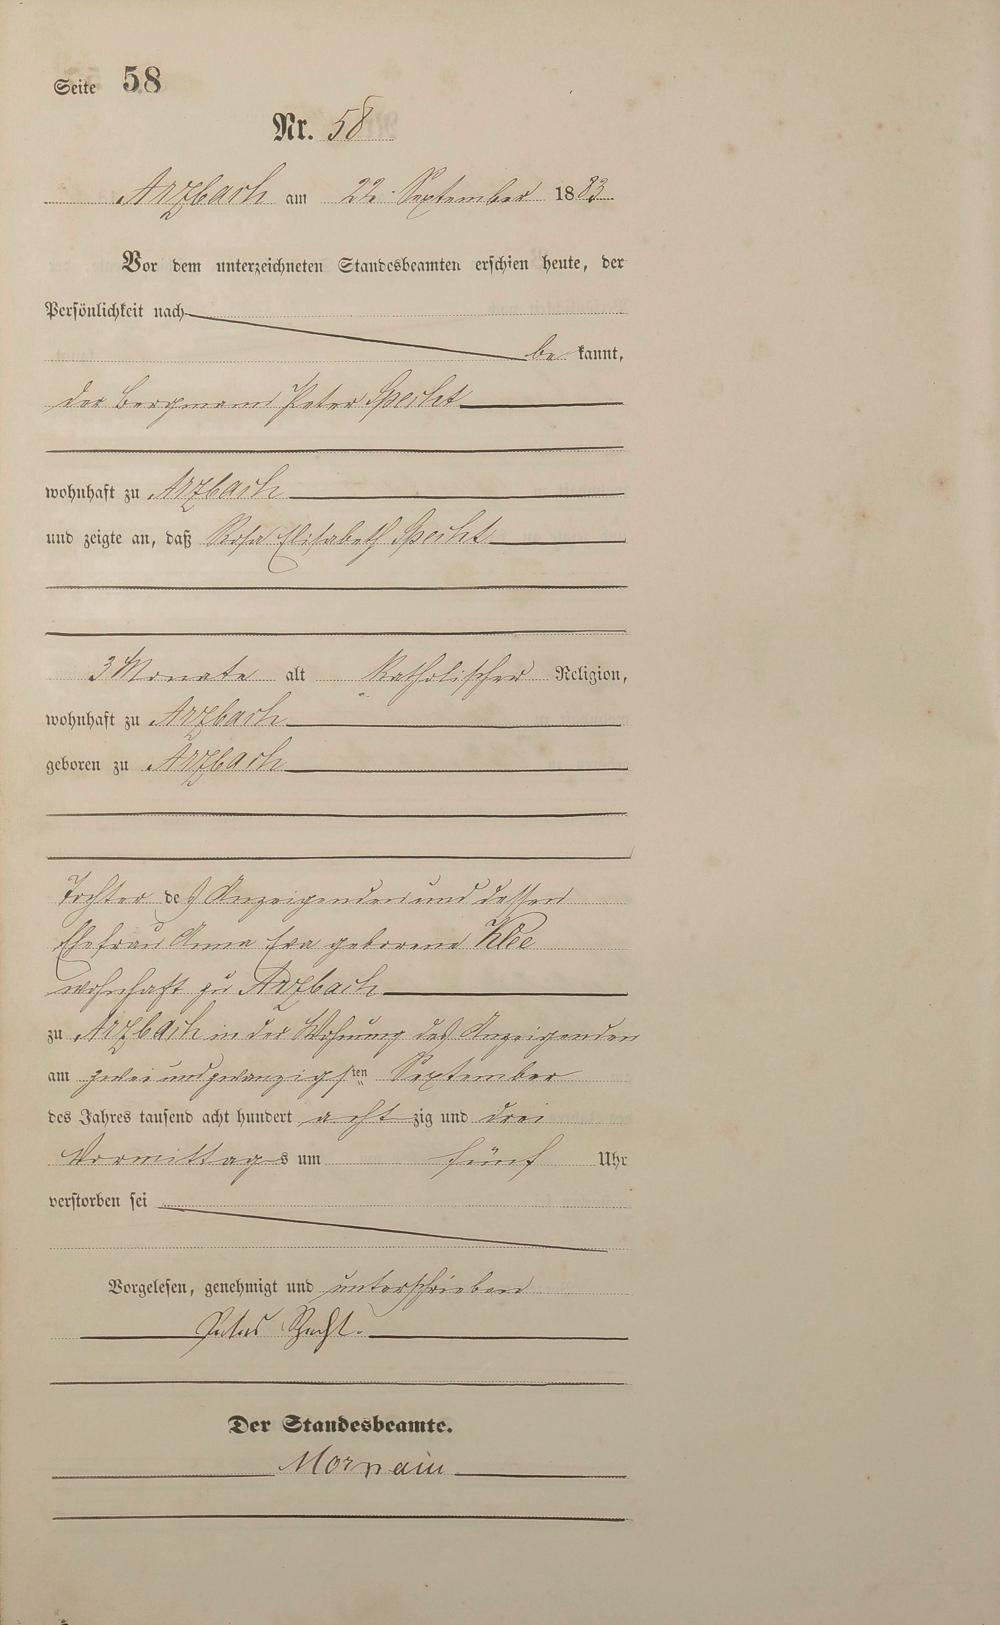 Seite 58
Nr. 58
Arzbach am 22. September 1883
Vor dem unterzeichneten Standesbeamten erschien heute, der
Persönlichkeit nach
be kannt,
der Bergmann Peter Specht
wohnhaft zu Arzbach
und zeigte an, daß Rosa Elisabeth Specht
3 Monate alt katholischer Religion,
wohnhaft zu Arzbach
geboren zu Arzbach
Tochter des Anzeigenden und dessen
Ehefrau Anna Eva geborene Klee
wohnhaft zu Arzbach
zu Arzbach in der Wohnung des Anzeigenden
am zweiundzwanzigsten September
des Jahres tausend acht hundert achtzig und drei
Vormittags um fünf Uhr
verstorben sei
Vorgelesen, genehmigt und unterschrieben
Peter Specht.
Der Standesbeamte.